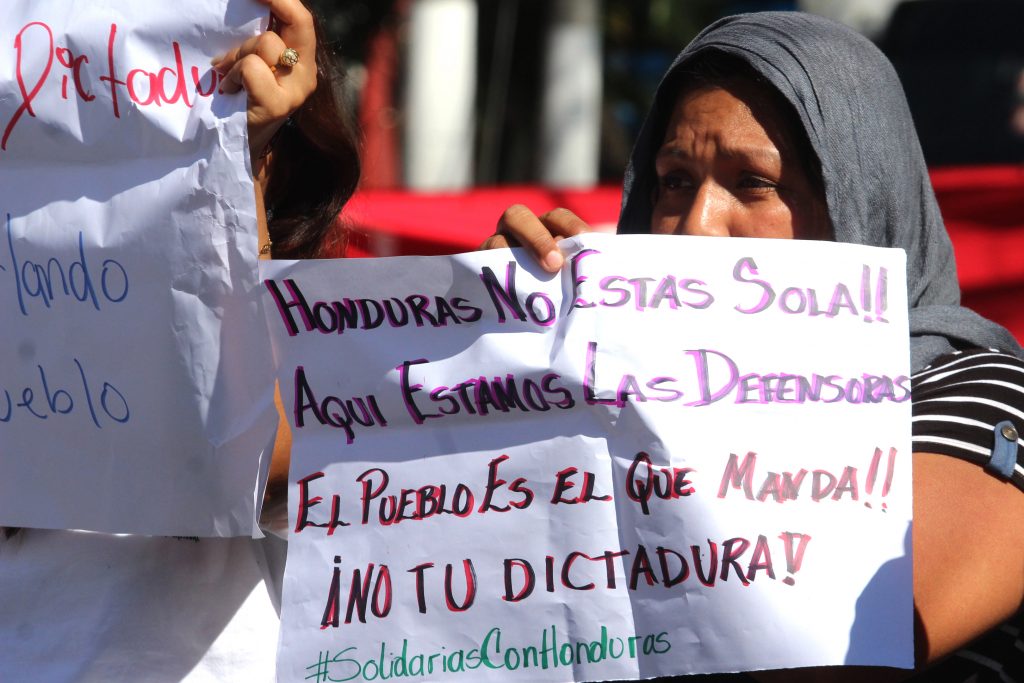 Dictadu
lando
ueblo
HONDURAS NO ESTAS SOLA!!
AQUI ESTAMOS LAS DEFENSORAS
EL PUEBLO ES EL QUE MANDA!!
¡NO TU DICTADURA!
#SolidariasConHonduras